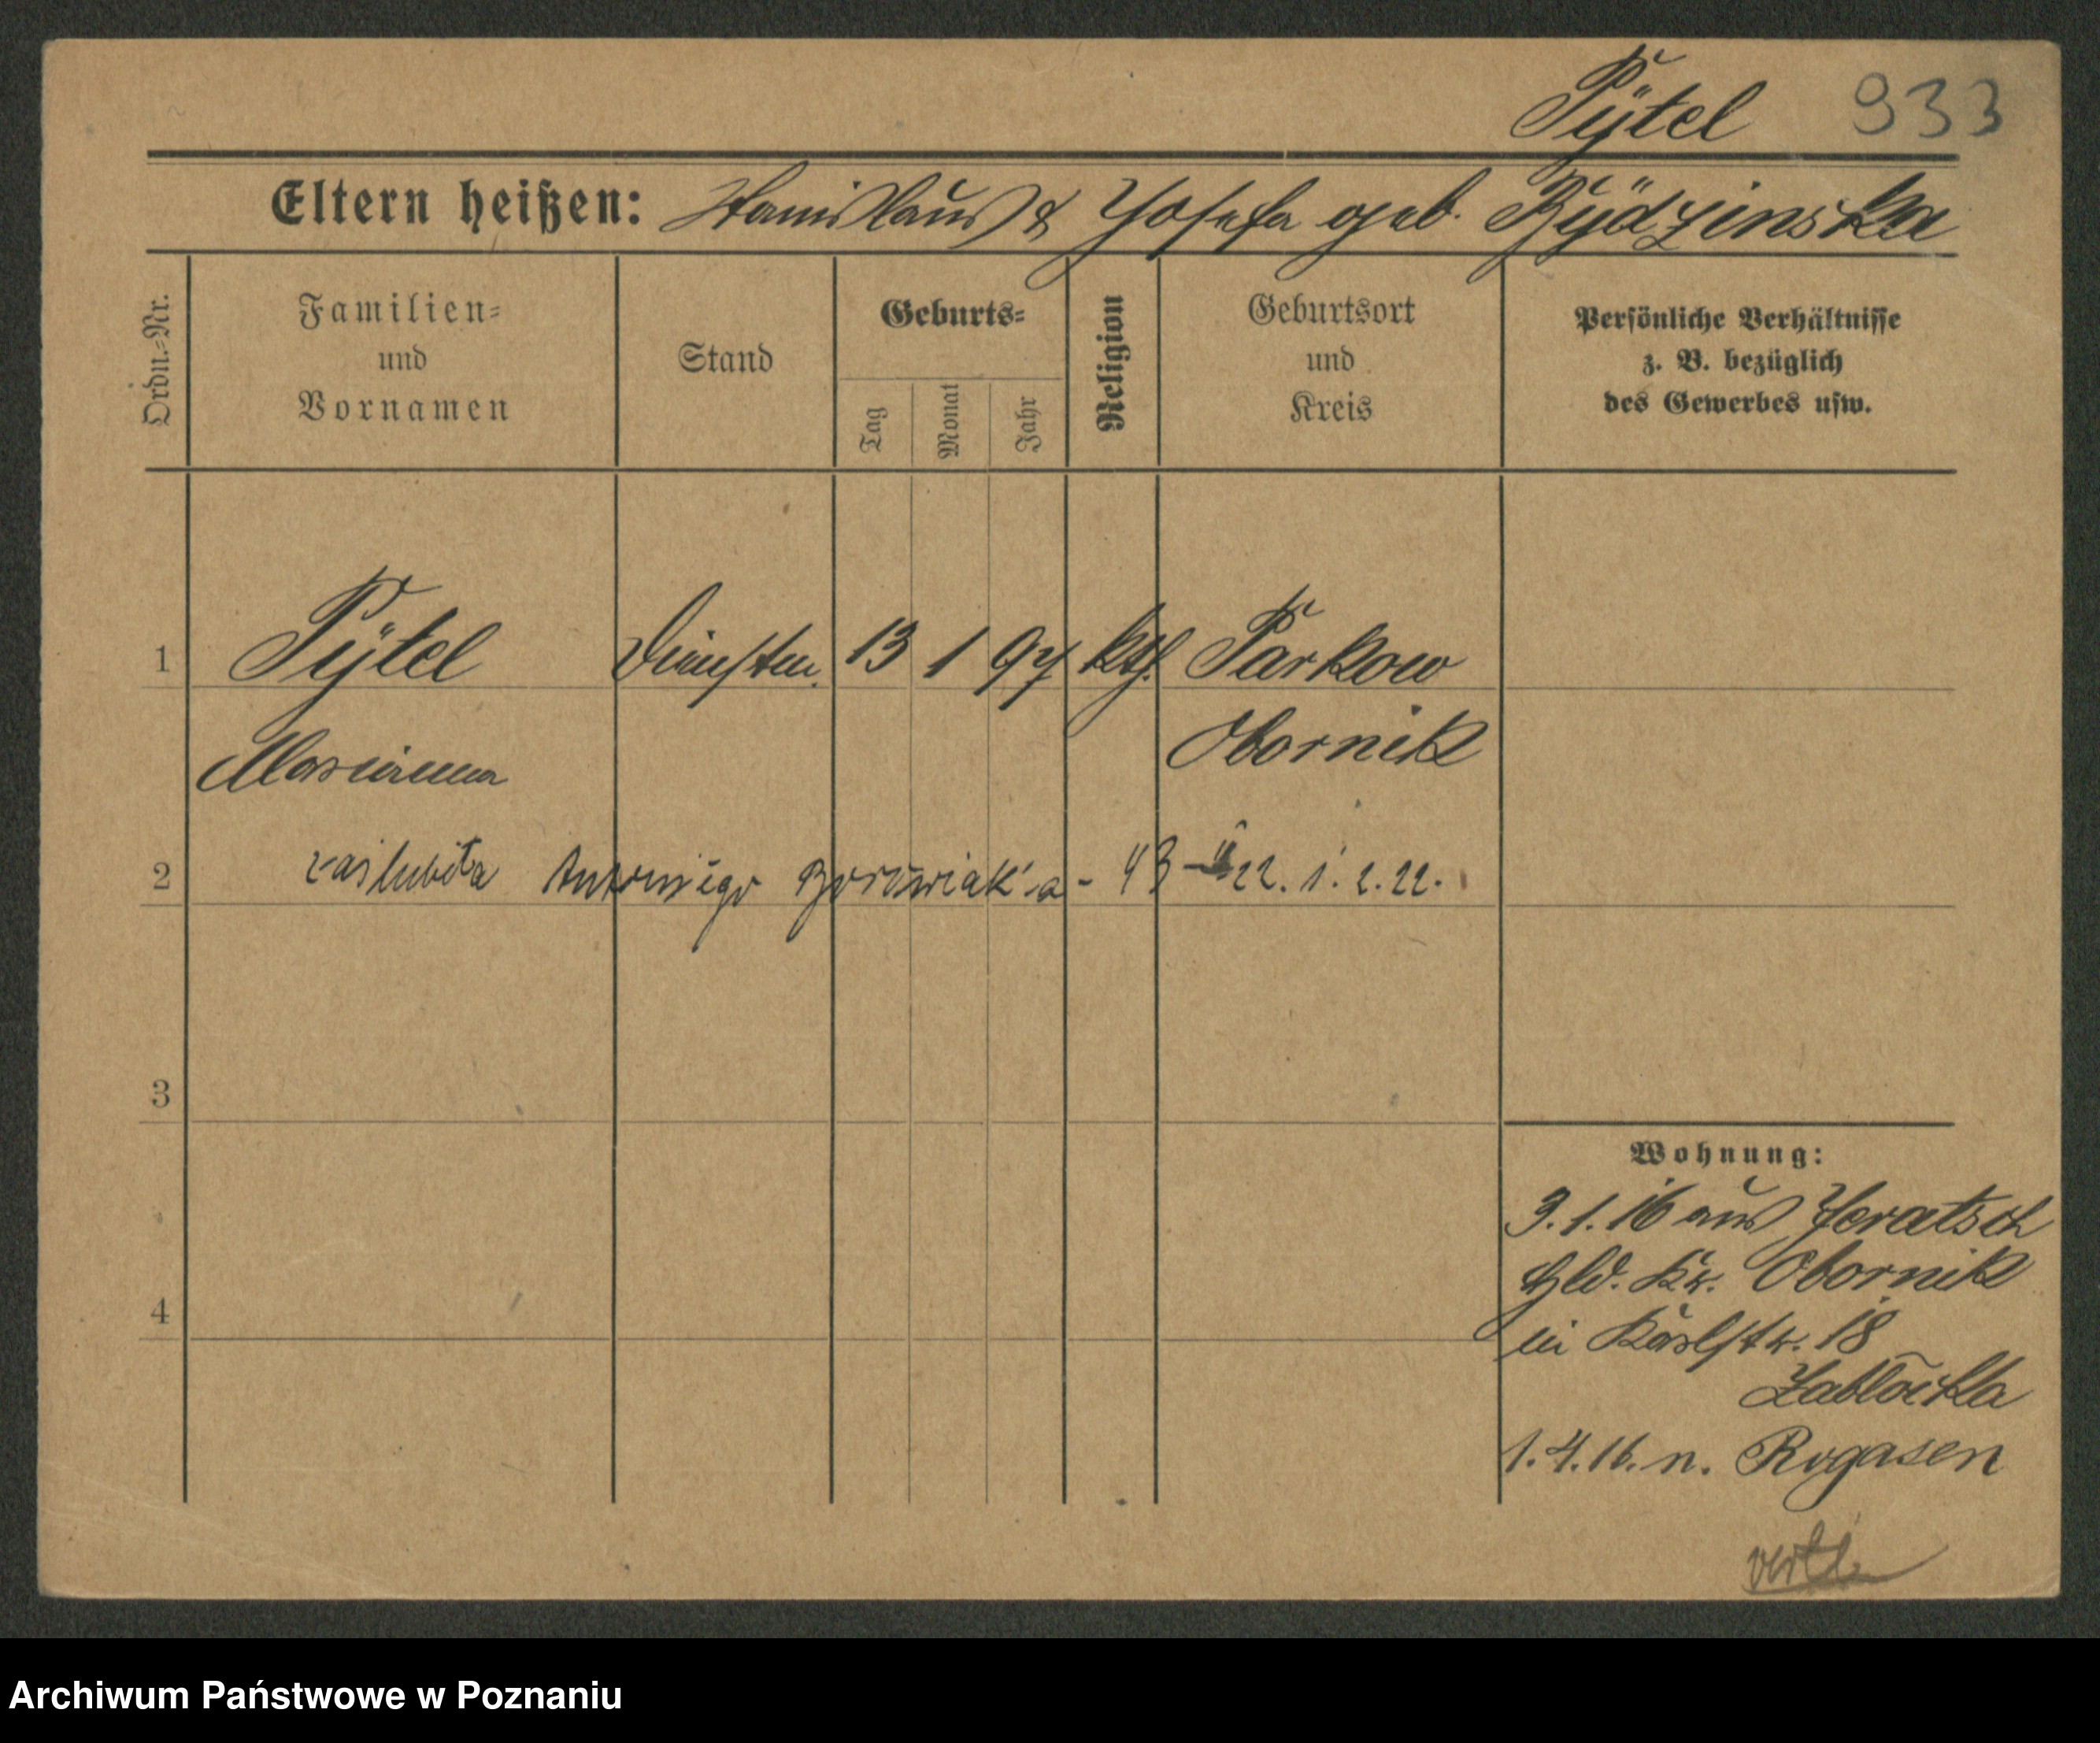 Pytel 933
Eltern heißen: Stanislaus & Josefa geb. Rydzinska
Ordn.-Nr.
Familien-
und
Vornamen
Stand
Geburts-
Tag
Monat
Jahr
Religion
Geburtsort
und
Kreis
Persönliche Verhältnisse
z. B. bezüglich
des Gewerbes usw.
1 Pytel 13 1 97 kth. Parkow
Obornik
Marianna
2 zaślubiła Antoniego Borowiak'a - 43 22. 1. 2. 22.
3
Wohnung:
3.1.16 aus Jeratsch
Hld. Kr. Obornik
in Karlstr. 18
4
Zablocka
1.4.16. n. Rogasen
Archiwum Państwowe w Poznaniu